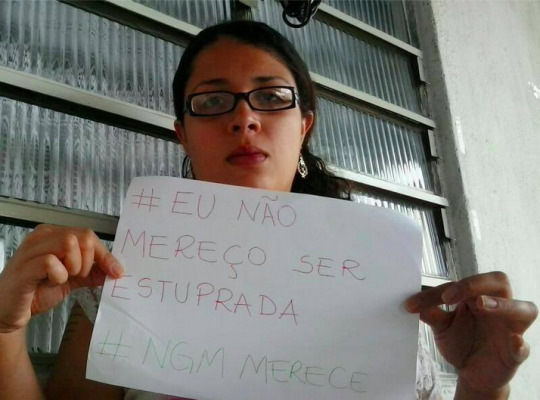 # EU NÃO
MEREÇO SER
ESTUPRADA
# NGM MERECE